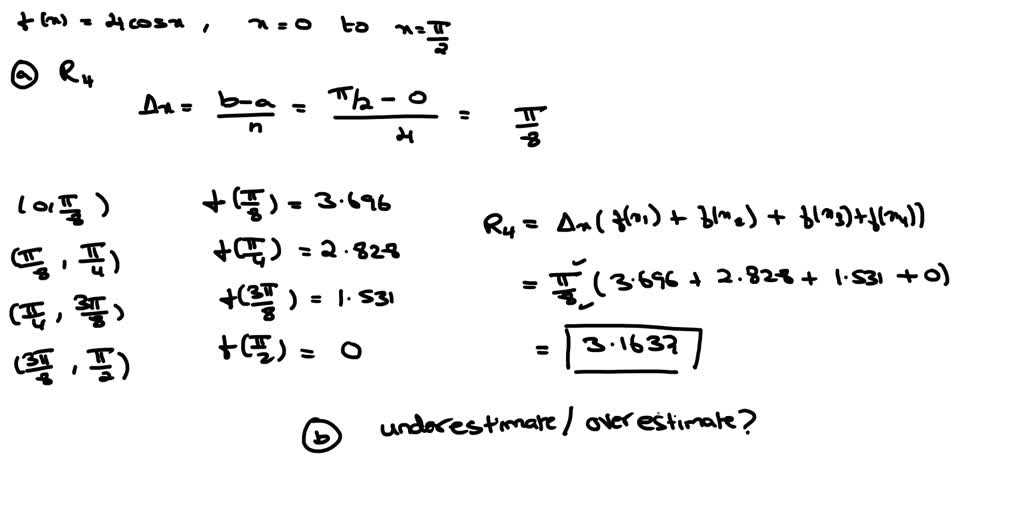 f(x) = 4cosx, x=0 to x=π/2
(a) R₄
Δx = b-a/n = π/2 - 0/4 = π/8
(0, π/8) f(π/8) = 3.696
(π/8, π/4) f(π/4) = 2.828
(π/4, 3π/8) f(3π/8) = 1.531
(3π/8, π/2) f(π/2) = 0
R₄ = Δx(f(x₁) + f(x₂) + f(x₃)+f(x₄))
= π/8 (3.696 + 2.828 + 1.531 + 0)
= 3.1637
(b) underestimate/overestimate?